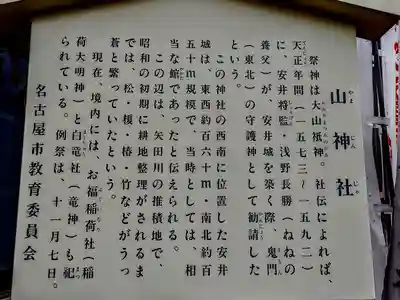 山神社
やまじんじゃ
祭神は大山祇神。社伝によれば、
天正年間(一五七三~一五九二)
に、安井将監(浅野長勝(ねねの
養父)が、安井城を築く際、鬼門
(東北)の守護神として勧請した
という。
この神社の西南に位置した安井
城は、東西約百六十m・南北約百
五十m規模で、当時としては、相
当な館であったと伝えられる。
この辺は、矢田川の堆積地で、
昭和の初期に耕地整理がされるま
では、松・榎・椿・竹などがうっ
蒼と繁っていたという。
現在、境内には、お福稲荷社(稲
荷大明神)と白竜社(竜神)も祀
られている。例祭は、十一月七日。
名古屋市教育委員会